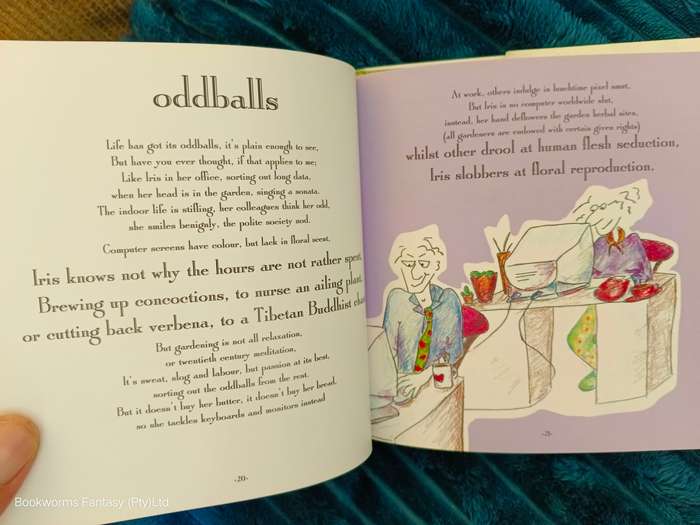 oddballs
Life has got its oddballs, it's plain enough to see,
But have you ever thought, if that applies to me;
Like Iris in her office, sorting out long data,
when her head is in the garden, singing a sonata.
The indoor life is stifling, her colleagues think her odd,
she smiles benignly, the polite society nod.
Computer screens have colour, but lack in floral scent.
Iris knows not why the hours are not rather spent,
Brewing up concoctions, to nurse an ailing plant,
or cutting back verbena, to a Tibetan Buddhist
But gardening is not all relaxation,
or twentieth century meditation,
It's sweat, slog and labour, but passion at its best,
sorting out the oddballs from the rest.
But it doesn't buy her butter, it doesn't buy her bread,
so she tackles keyboards and monitors instead
-20-
At work, others indulge in lunchtime pixel smut,
But Iris is no computer worldwide slut,
instead, her hand deflowers the garden herbal sites,
(all gardeners are endowed with certain given rights)
whilst other drool at human flesh seduction,
Iris slobbers at floral reproduction.
-21-
Bookworms Fantasy (Pty)Ltd